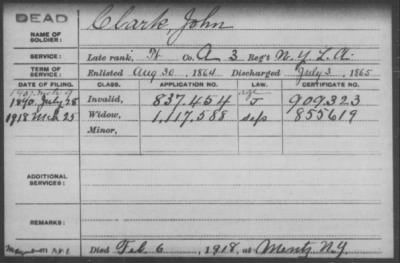 DEAD
NAME OF SOLDIER: Clark, John
SERVICE: Late rank, Co. A 3 Reg't N.Y. L. A.
TERM OF SERVICE: Enlisted Aug 30, 1864 Discharged July 3, 1865
DATE OF FILING. CLASS. APPLICATION NO. LAW. CERTIFICATE NO.
1890, July 28 Invalid, 837.454 J 909.323
1918 Mch 25 Widow, 1,117,588 855619
Minor,
ADDITIONAL SERVICES:
REMARKS:
Died Feb. 6, 1918, at Mentz, N.Y.